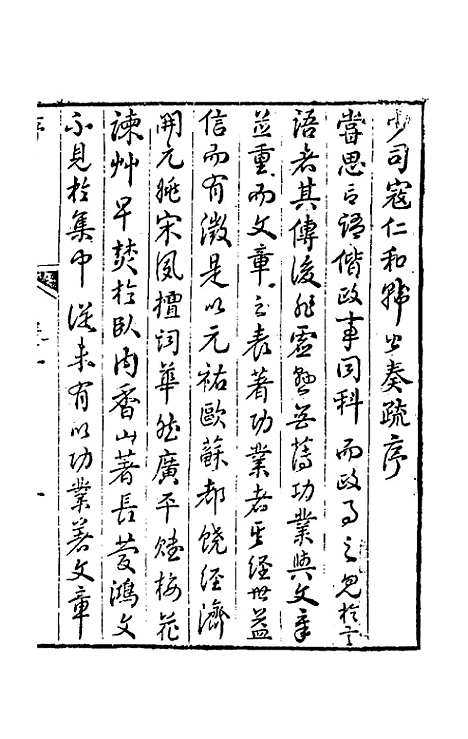 少司寇仁和韩公奏疏序
嘗思言語偕政事同科而政事之见於言
語者其傳後非虛無藉功業與文章
並重而文章之表著功業者其經世益
信而有徵是以元祐歐蘇都饒經濟
開元姚宋夙擅詞華然廣平賦梅花
諫艸早焚於臥內香山著長慶鴻文
不見於集中從来有以功業著文章